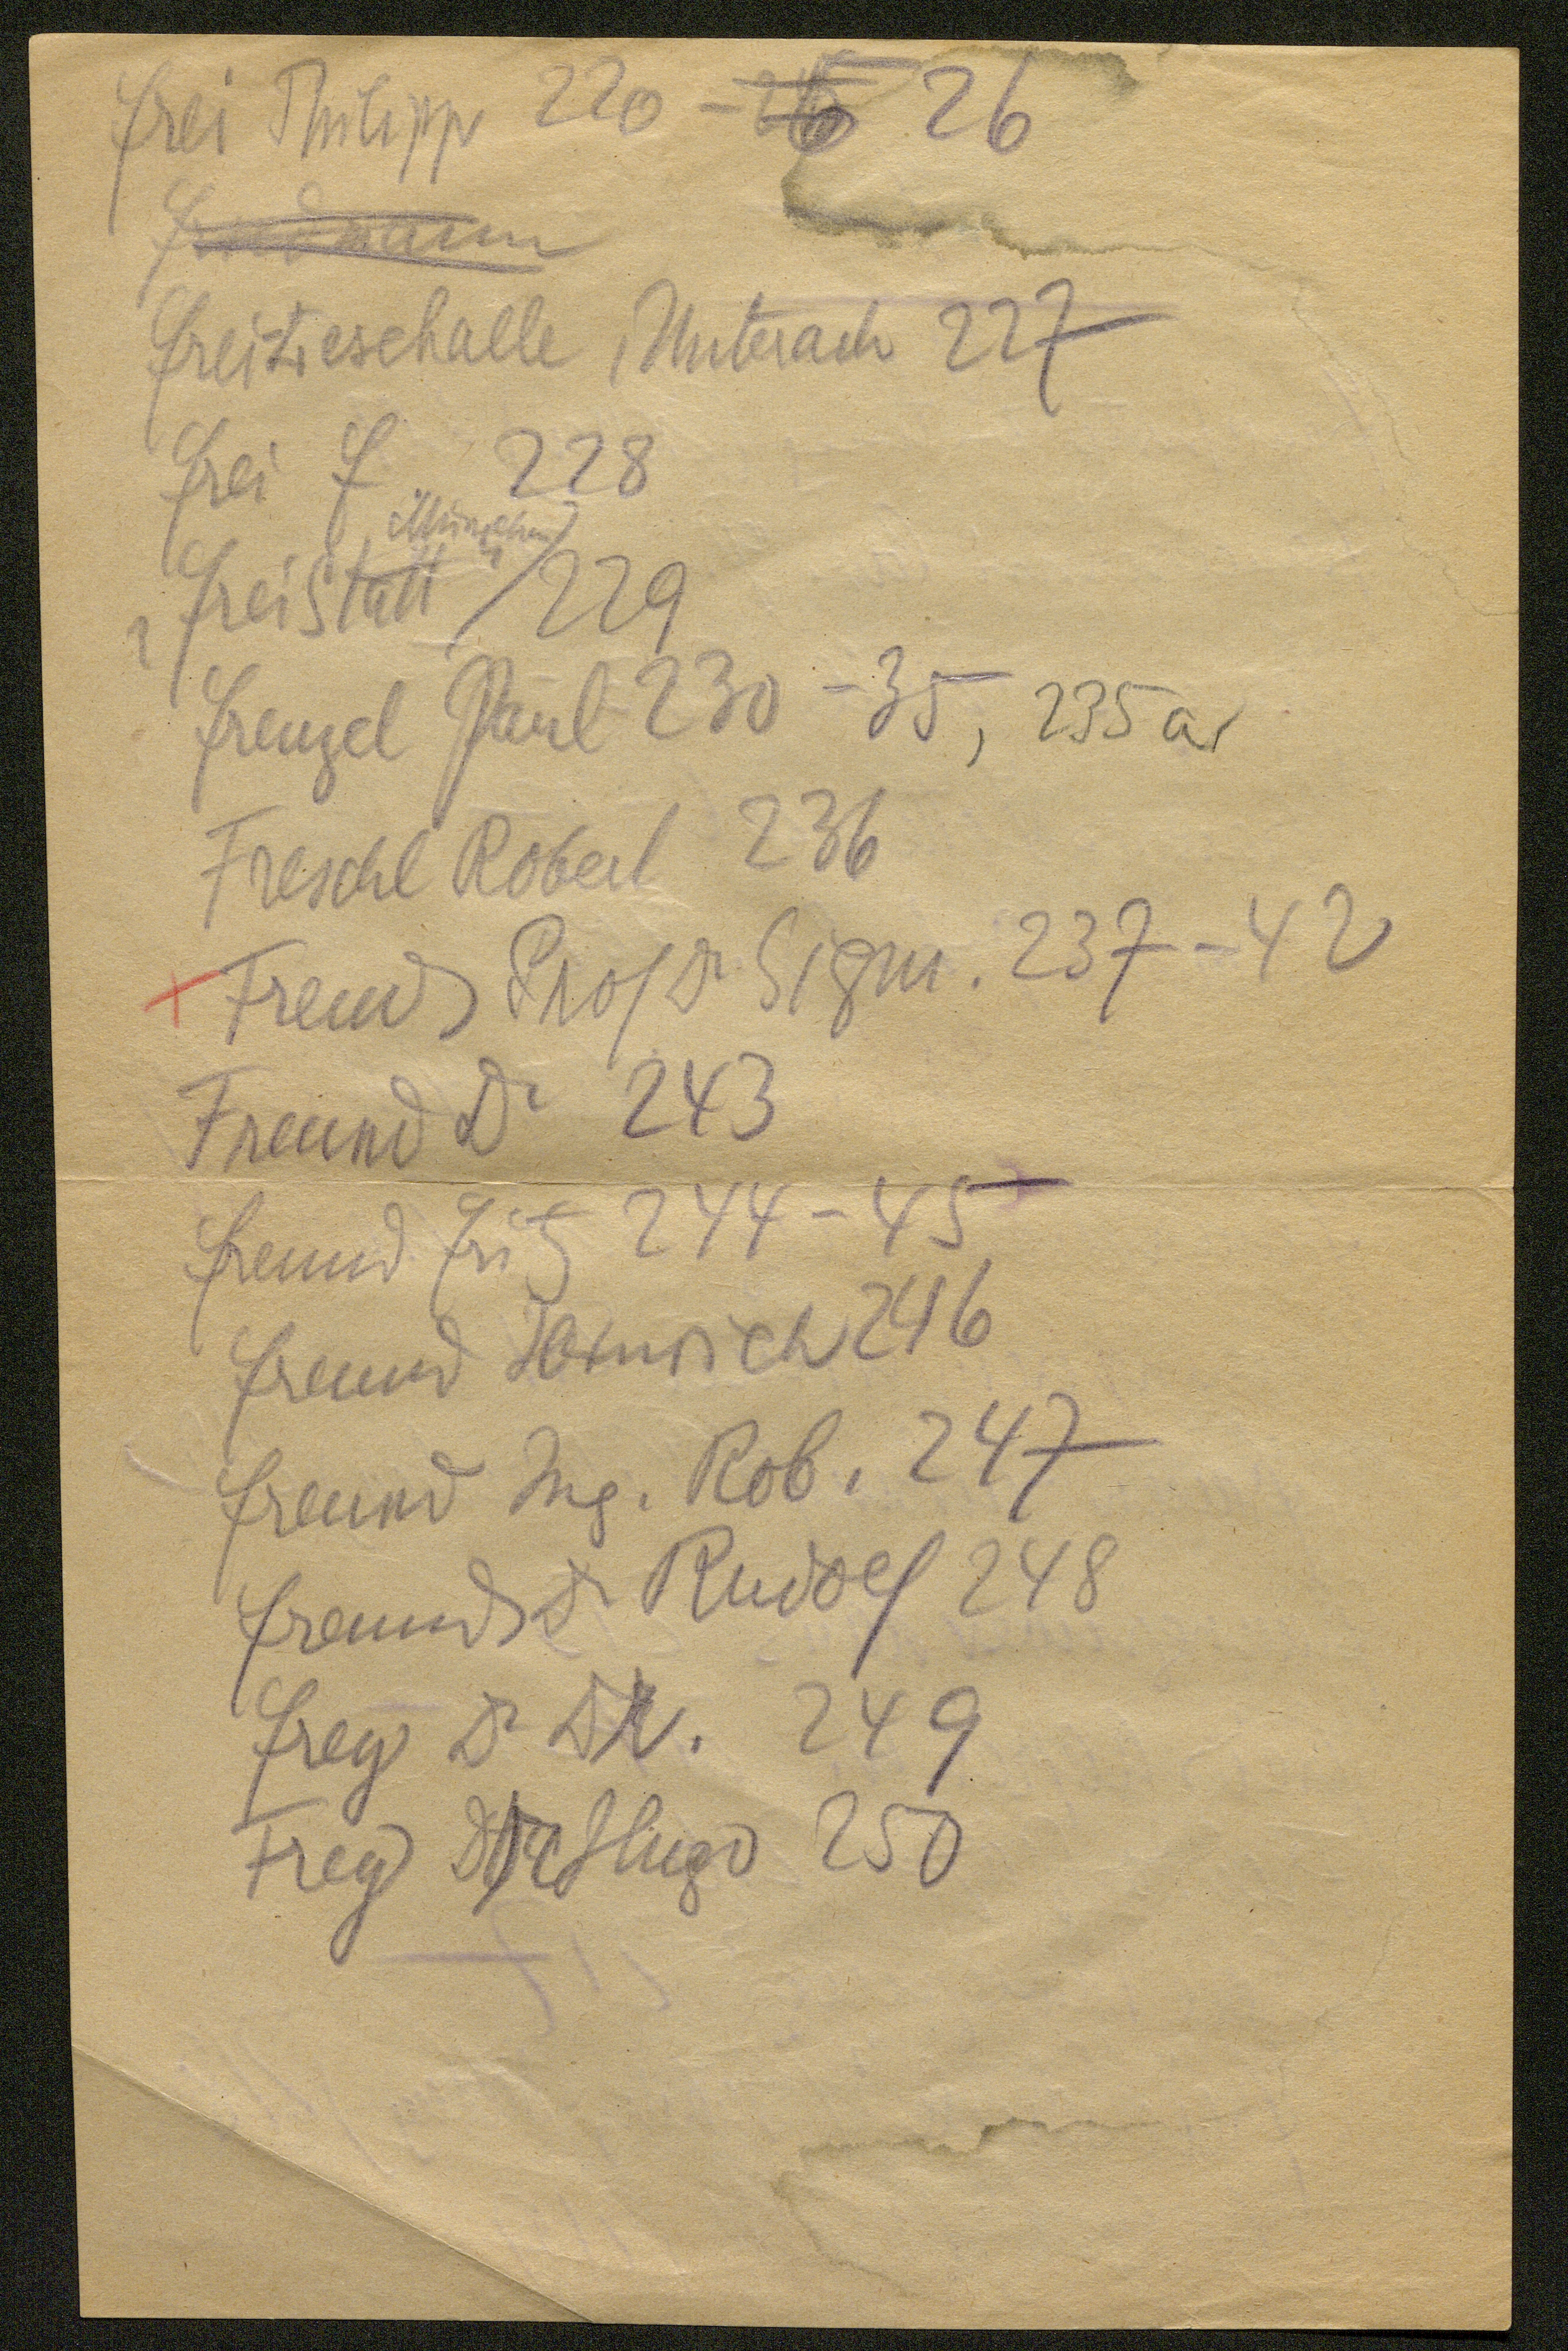 Frei Philipp 220 - 26
Freilesehalle, Unterach 227
Frei F 228
München
Freistatt 229
Frenzel Paul 230 - 35, 235a
Freschl Robert 236
+ Freud Prof Dr Sigm. 237 - 42
Freund Dr 243
Freund Fritz 244 - 45
Freund Heinrich 246
Freund Ing. Rob. 247
Freund Dr Rudolf 248
Frey Dr Dk. 249
Frey Hugo 250